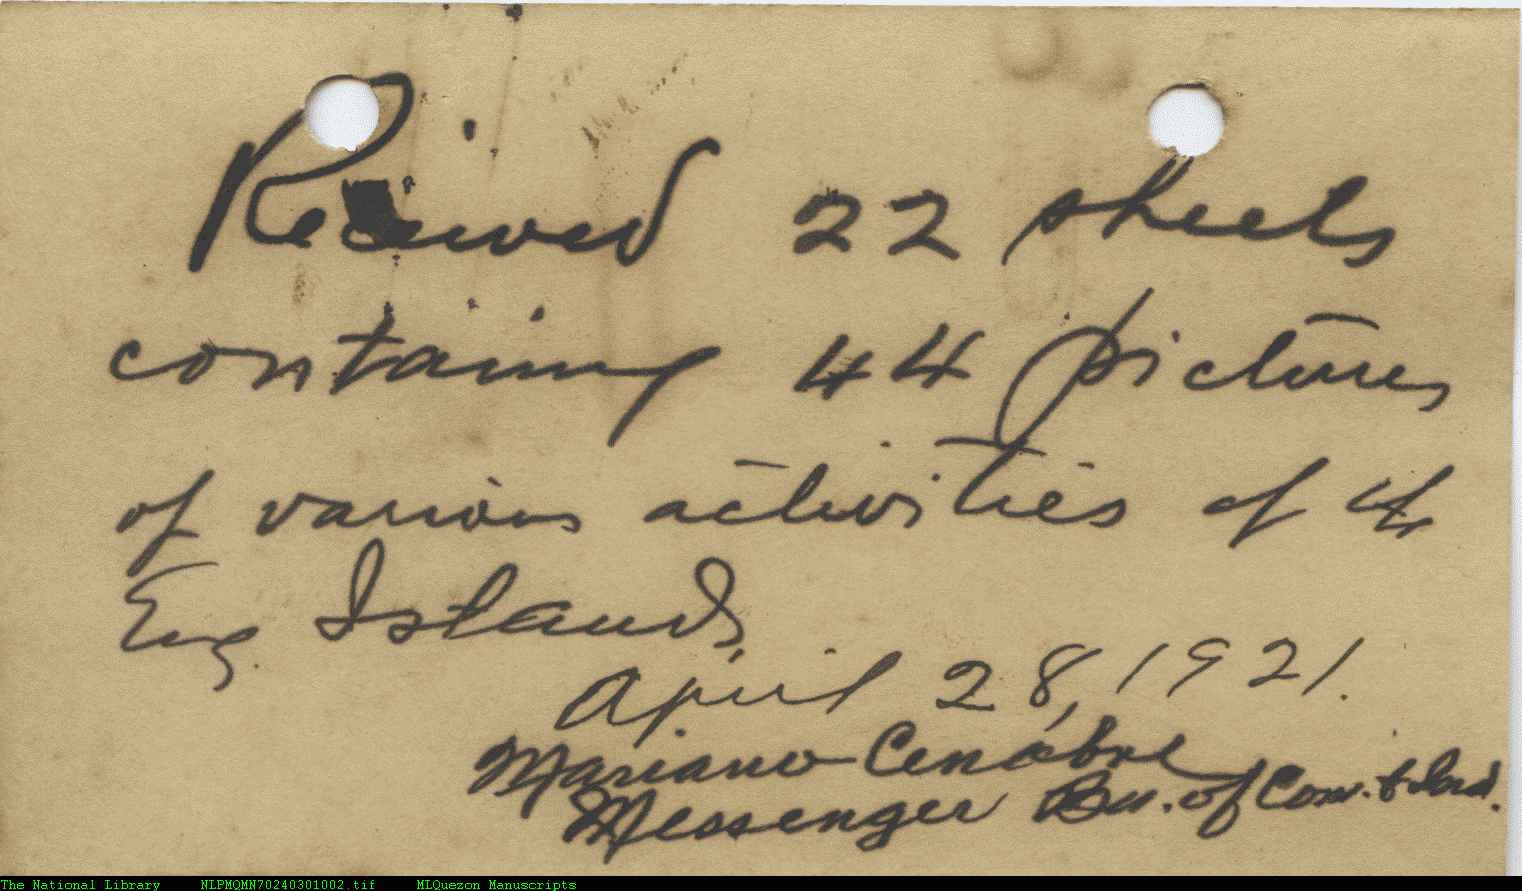 Received 22 sheets
containing 44 pictures
of various activities of the
Islands
April 28, 1921.
Mariano Cenabre
Messenger Bu. of Com. & Ind.
The National Library NLPMQMN70240301002.tif MLQuezon Manuscripts